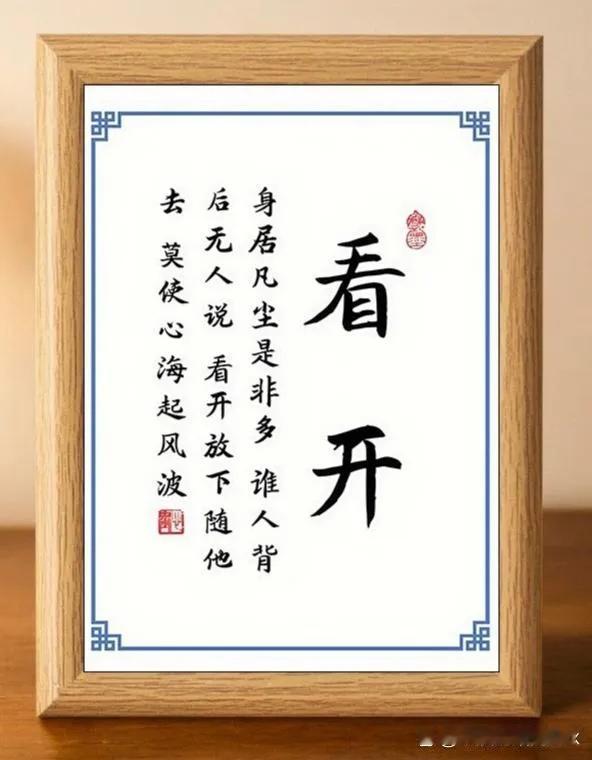 看开
身居凡尘是非多 谁人背
后无人说 看开放下随他
去 莫使心海起风波